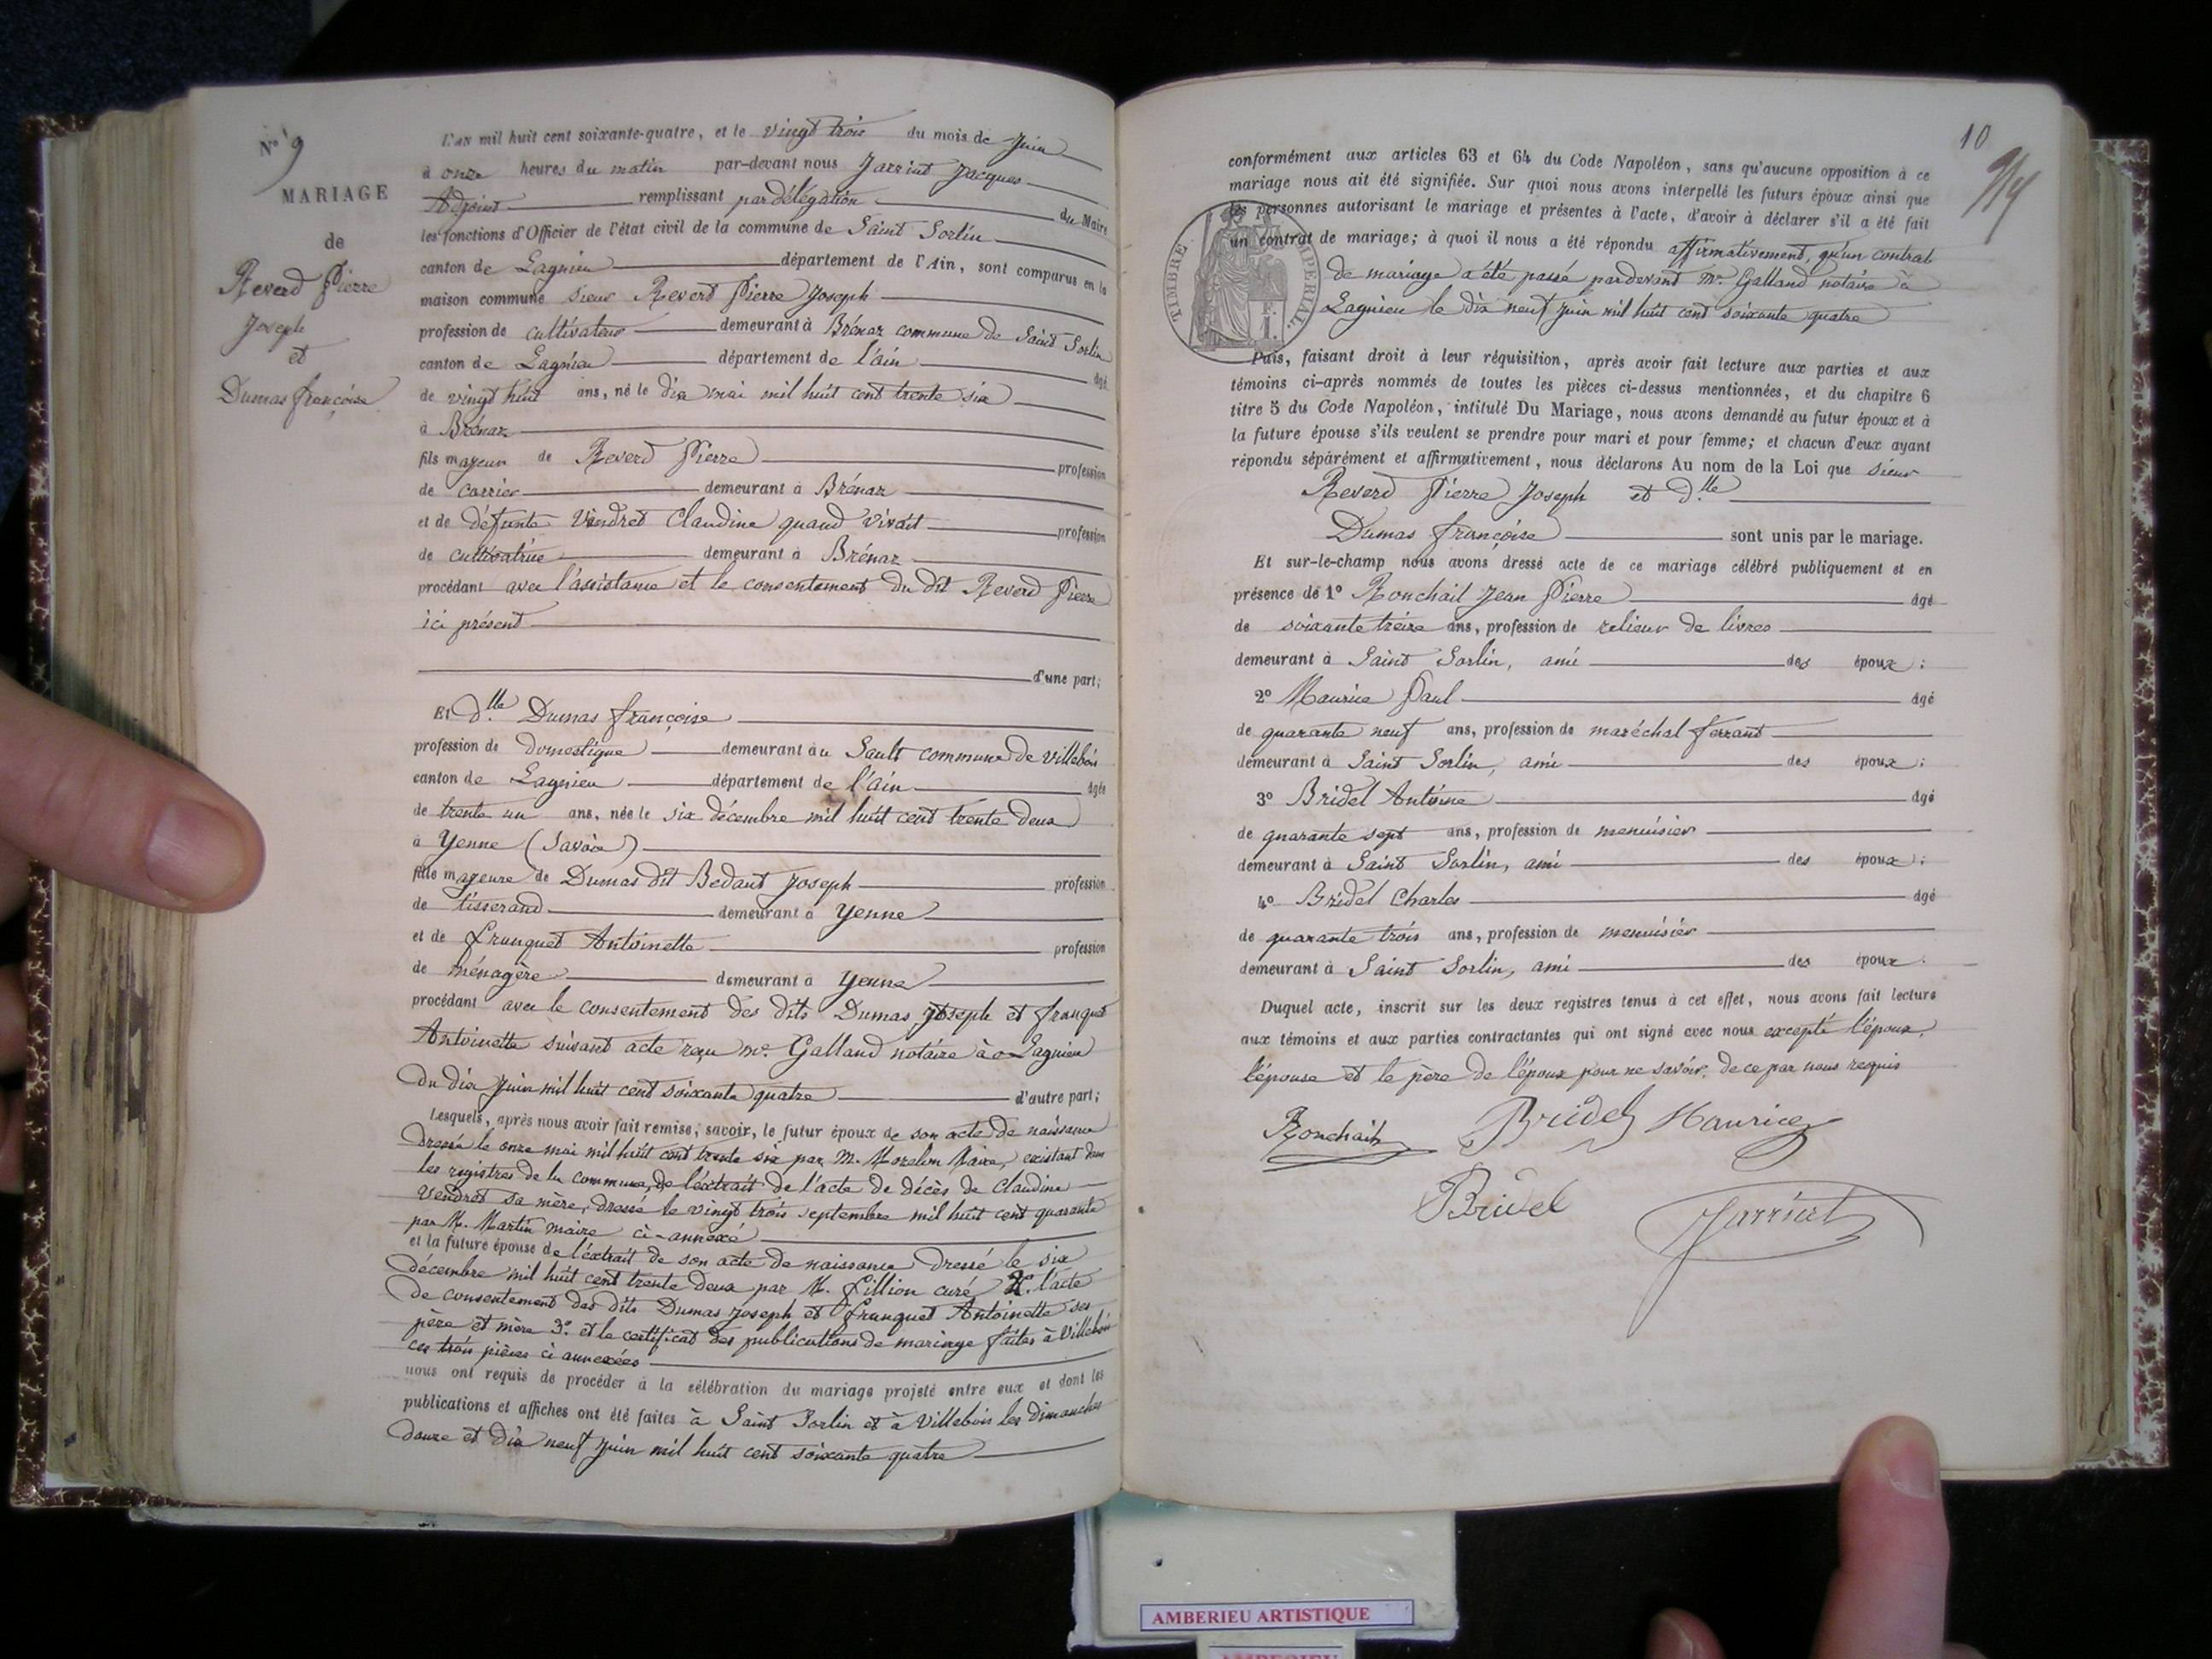 N° 9
MARIAGE
de
Reverd Pierre
Joseph
et
Dumas françoise
L'an mil huit cent soixante-quatre, et le vingt trois du mois de Juin
à onze heures du matin par-devant nous Jarriut Jacques
Adjoint remplissant par délégation du Maire
les fonctions d'Officier de l'état civil de la commune de Saint Sorlin
canton de Lagnieu département de l'Ain, sont comparus en la
maison commune sieur Reverd Pierre Joseph
profession de cultivateur demeurant à Brénaz commune de Saint Sorlin
canton de Lagnieu département de l'ain âgé
de vingt huit ans, né le dix mai mil huit cent trente six
à Brénaz
fils majeur de Reverd Pierre profession
de carrier demeurant à Brénaz
et de défunte Vendret Claudine quand vivait profession
de cultivatrice demeurant à Brénaz
procédant avec l'assistance et le consentement du dit Reverd Pierre
ici présent
d'une part;
Et d.lle Dumas françoise
profession de domestique demeurant au Sault commune de Villebois
canton de Lagnieu département de l'ain âgée
de trente un ans, née le six décembre mil huit cent trente deux
à Yenne (Savoie)
fille majeure de Dumas dit Bedant Joseph profession
de tisserand demeurant à Yenne
et de Franquet Antoinette profession
de ménagère demeurant à Yenne
procédant avec le consentement des dits Dumas Joseph et franquet
Antoinette suivant acte reçu me. Galland notaire à Lagnieu
du dix Juin mil huit cent soixante quatre d'autre part;
Lesquels, après nous avoir fait remise, savoir, le futur époux de son acte de naissance
dressé le onze mai mil huit cent trente six par M. Morelon Maire, existant dans
les registres de la commune, de l'extrait de l'acte de décès de Claudine
Vendret sa mère, dressé le vingt trois septembre mil huit cent quarante
par M. Martin maire ci-annexé
et la future épouse de l'extrait de son acte de naissance dressé le six
décembre mil huit cent trente deux par M. Fillion curé 2°. l'acte
de consentement des dits Dumas Joseph et Franquet Antoinette ses
père et mère 3°. et le certificat des publications de mariage faites à Villebois
ces trois pièces ci annexées
nous ont requis de procéder à la célébration du mariage projeté entre eux et dont les
publications et affiches ont été faites à Saint Sorlin et à Villebois les dimanches
douze et dix neuf Juin mil huit cent soixante quatre
10
conformément aux articles 63 et 64 du Code Napoléon, sans qu'aucune opposition à ce
mariage nous ait été signifiée. Sur quoi nous avons interpellé les futurs époux ainsi que
les personnes autorisant le mariage et présentes à l'acte, d'avoir à déclarer s'il a été fait
un contrat de mariage; à quoi il nous a été répondu affirmativement, qu'un contrat
de mariage a été passé pardevant Me. Galland notaire à
Lagnieu le dix neuf Juin mil huit cent soixante quatre
TIMBRE IMPERIAL.
F.
1.
Puis, faisant droit à leur réquisition, après avoir fait lecture aux parties et aux
témoins ci-après nommés de toutes les pièces ci-dessus mentionnées, et du chapitre 6
titre 5 du Code Napoléon, intitulé Du Mariage, nous avons demandé au futur époux et à
la future épouse s'ils veulent se prendre pour mari et pour femme; et chacun d'eux ayant
répondu séparément et affirmativement, nous déclarons Au nom de la Loi que sieur
Reverd Pierre Joseph et d.lle
Dumas françoise sont unis par le mariage.
Et sur-le-champ nous avons dressé acte de ce mariage célébré publiquement et en
présence de 1° Ronchail Jean Pierre âgé
de soixante treize ans, profession de relieur de livres
demeurant à Saint Sorlin, ami des époux;
2° Maurice Paul âgé
de quarante neuf ans, profession de maréchal ferrant
demeurant à Saint Sorlin, ami des époux;
3° Bridel Antoine âgé
de quarante sept ans, profession de menuisier
demeurant à Saint Sorlin, ami des époux;
4° Bridel Charles âgé
de quarante trois ans, profession de menuisier
demeurant à Saint Sorlin, ami des époux.
Duquel acte, inscrit sur les deux registres tenus à cet effet, nous avons fait lecture
aux témoins et aux parties contractantes qui ont signé avec nous excepté l'époux,
l'épouse et le père de l'époux pour ne savoir. de ce par nous requis
Ronchail Bridel Maurice
Bridel Jarriut
AMBERIEU ARTISTIQUE
AMBERIEU